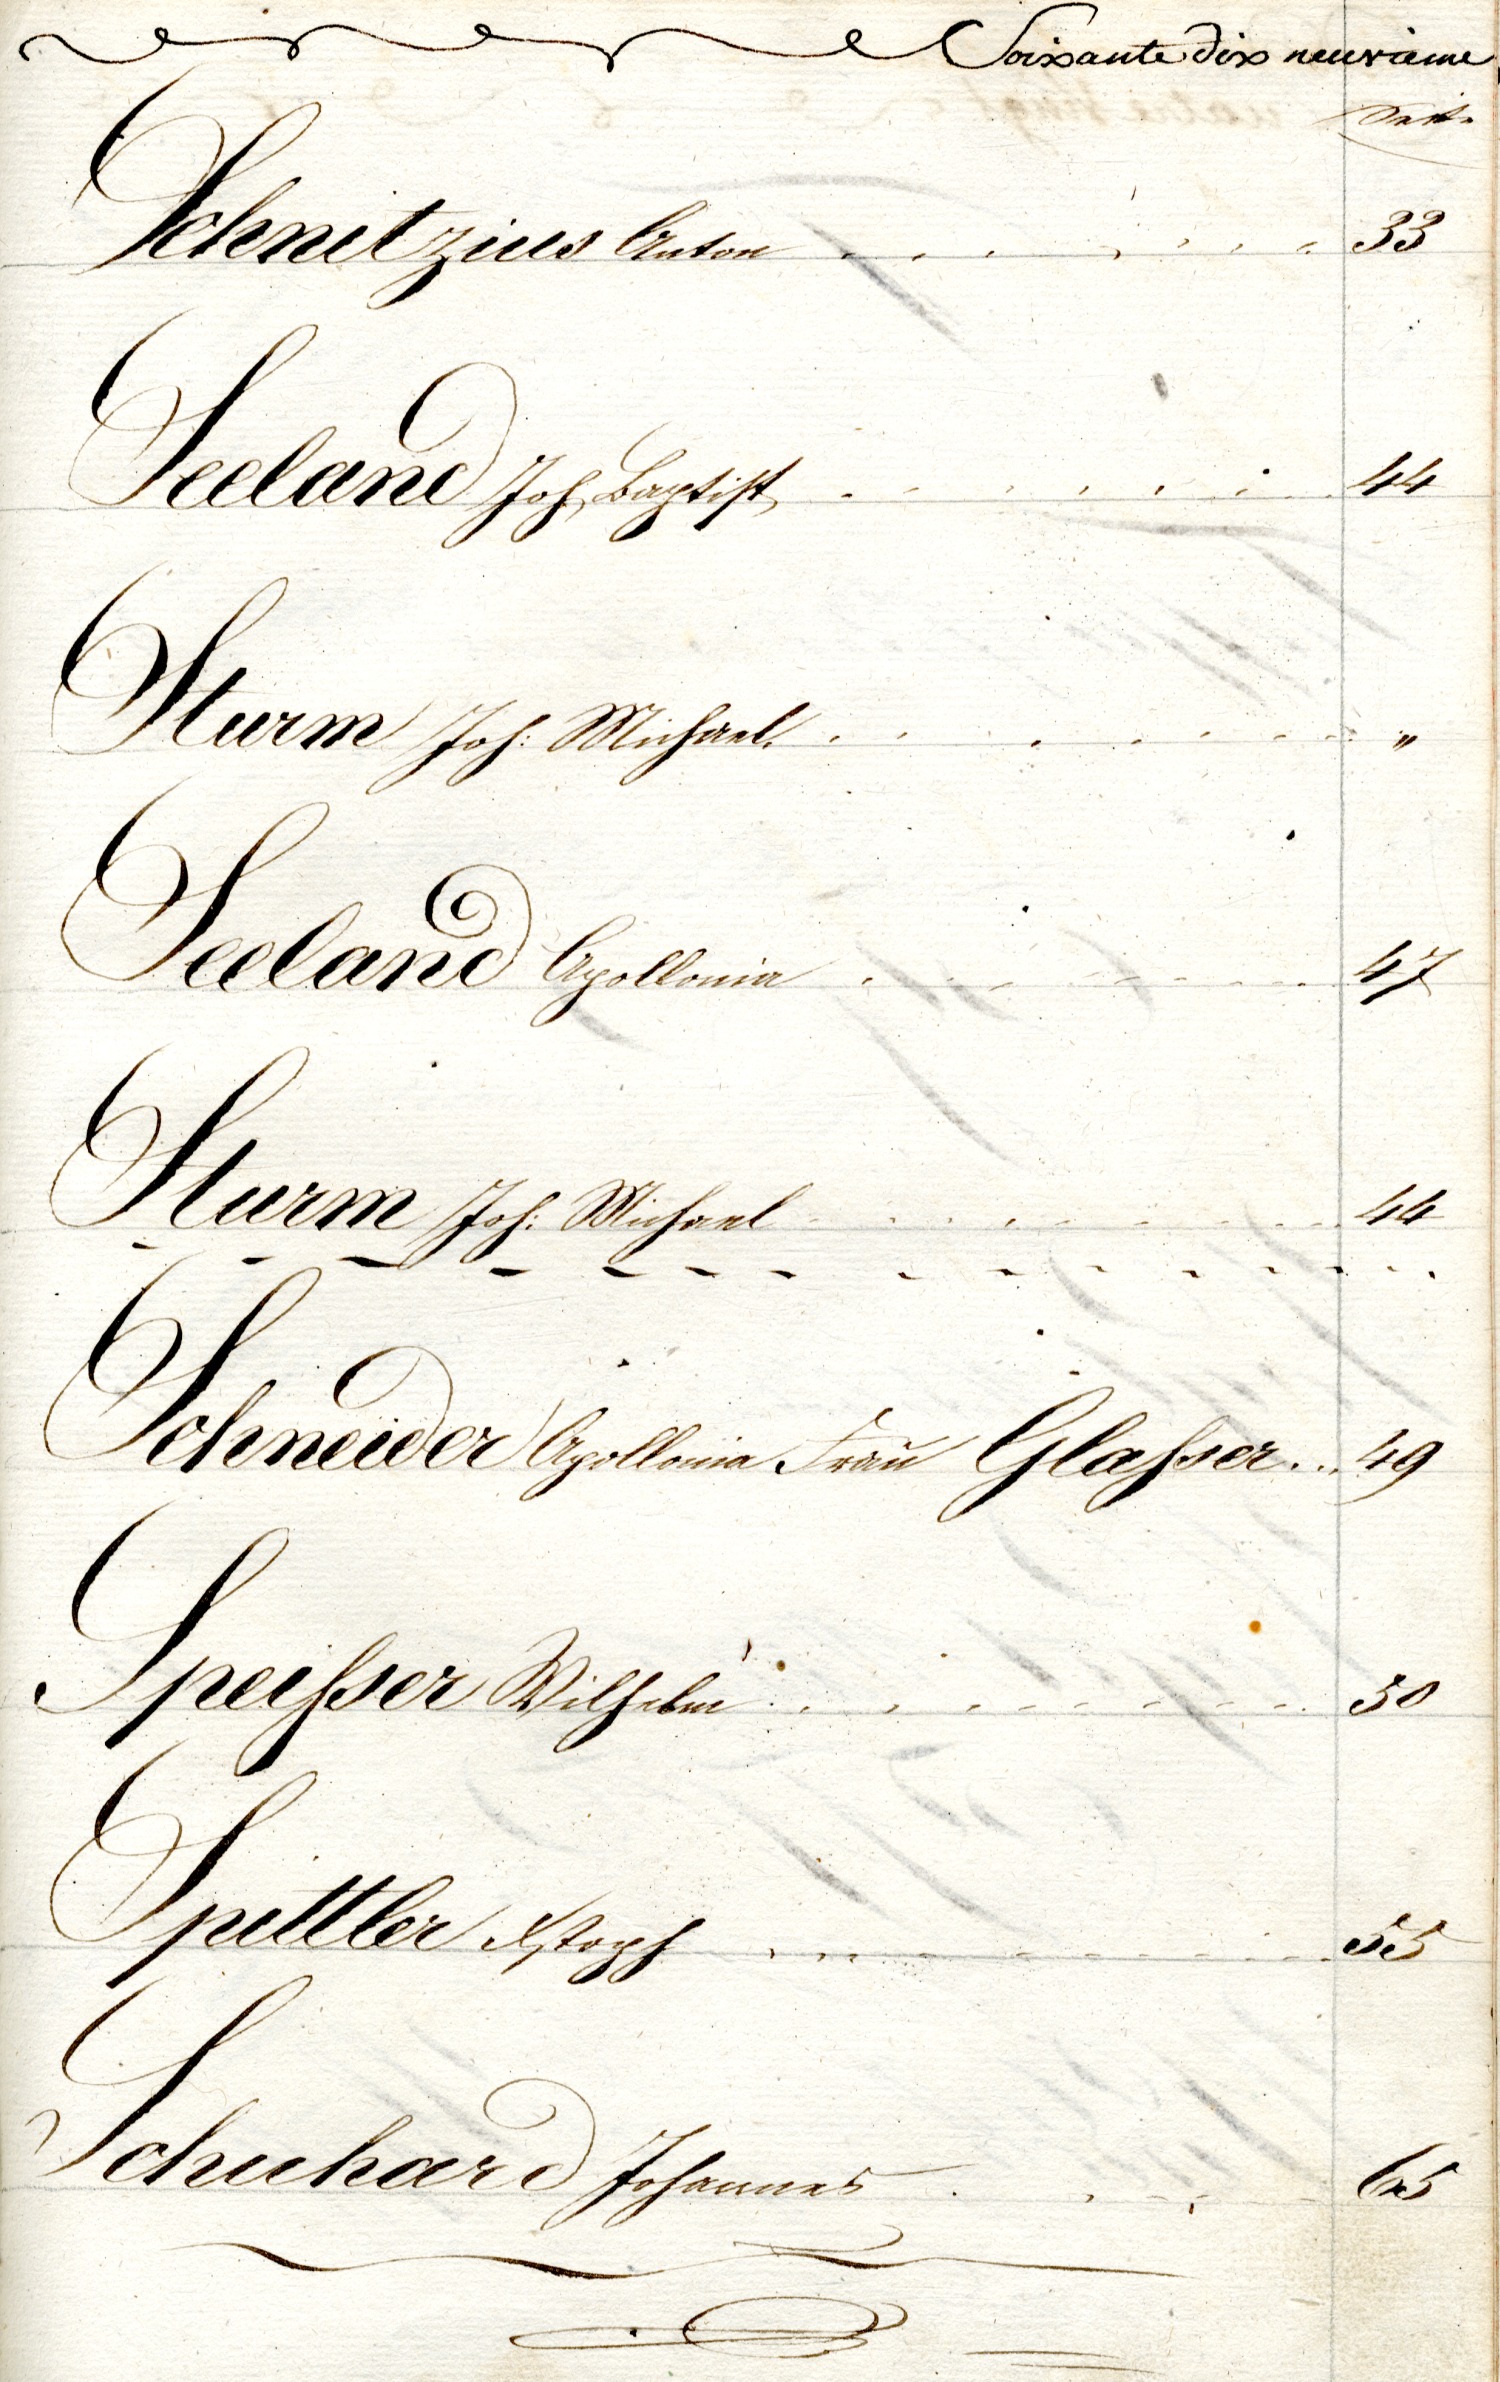 Soixante dix neuvieme
Seite
Schnitzius Anton . . . . . . . 33
Seeland Joh. Baptist . . . . . . . 44
Sturm Joh: Michael . . . . . . . "
Seeland Apollonia . . . . . . . 47
Sturm Joh: Michael . . . . . . . 44
Schneider Apollonia Frau Glaßer . . . 49
Speißer Wilhelm . . . . . . . 50
Spittler Xstoph . . . . . . . 55
Schuhard Johannes . . . . 65